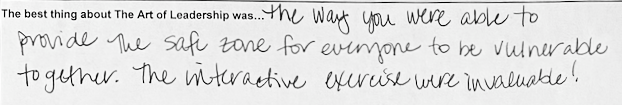 The best thing about The Art of Leadership was...The way you were able to
provide the safe zone for everyone to be vulnerable
together. The interactive exercise were invaluable!